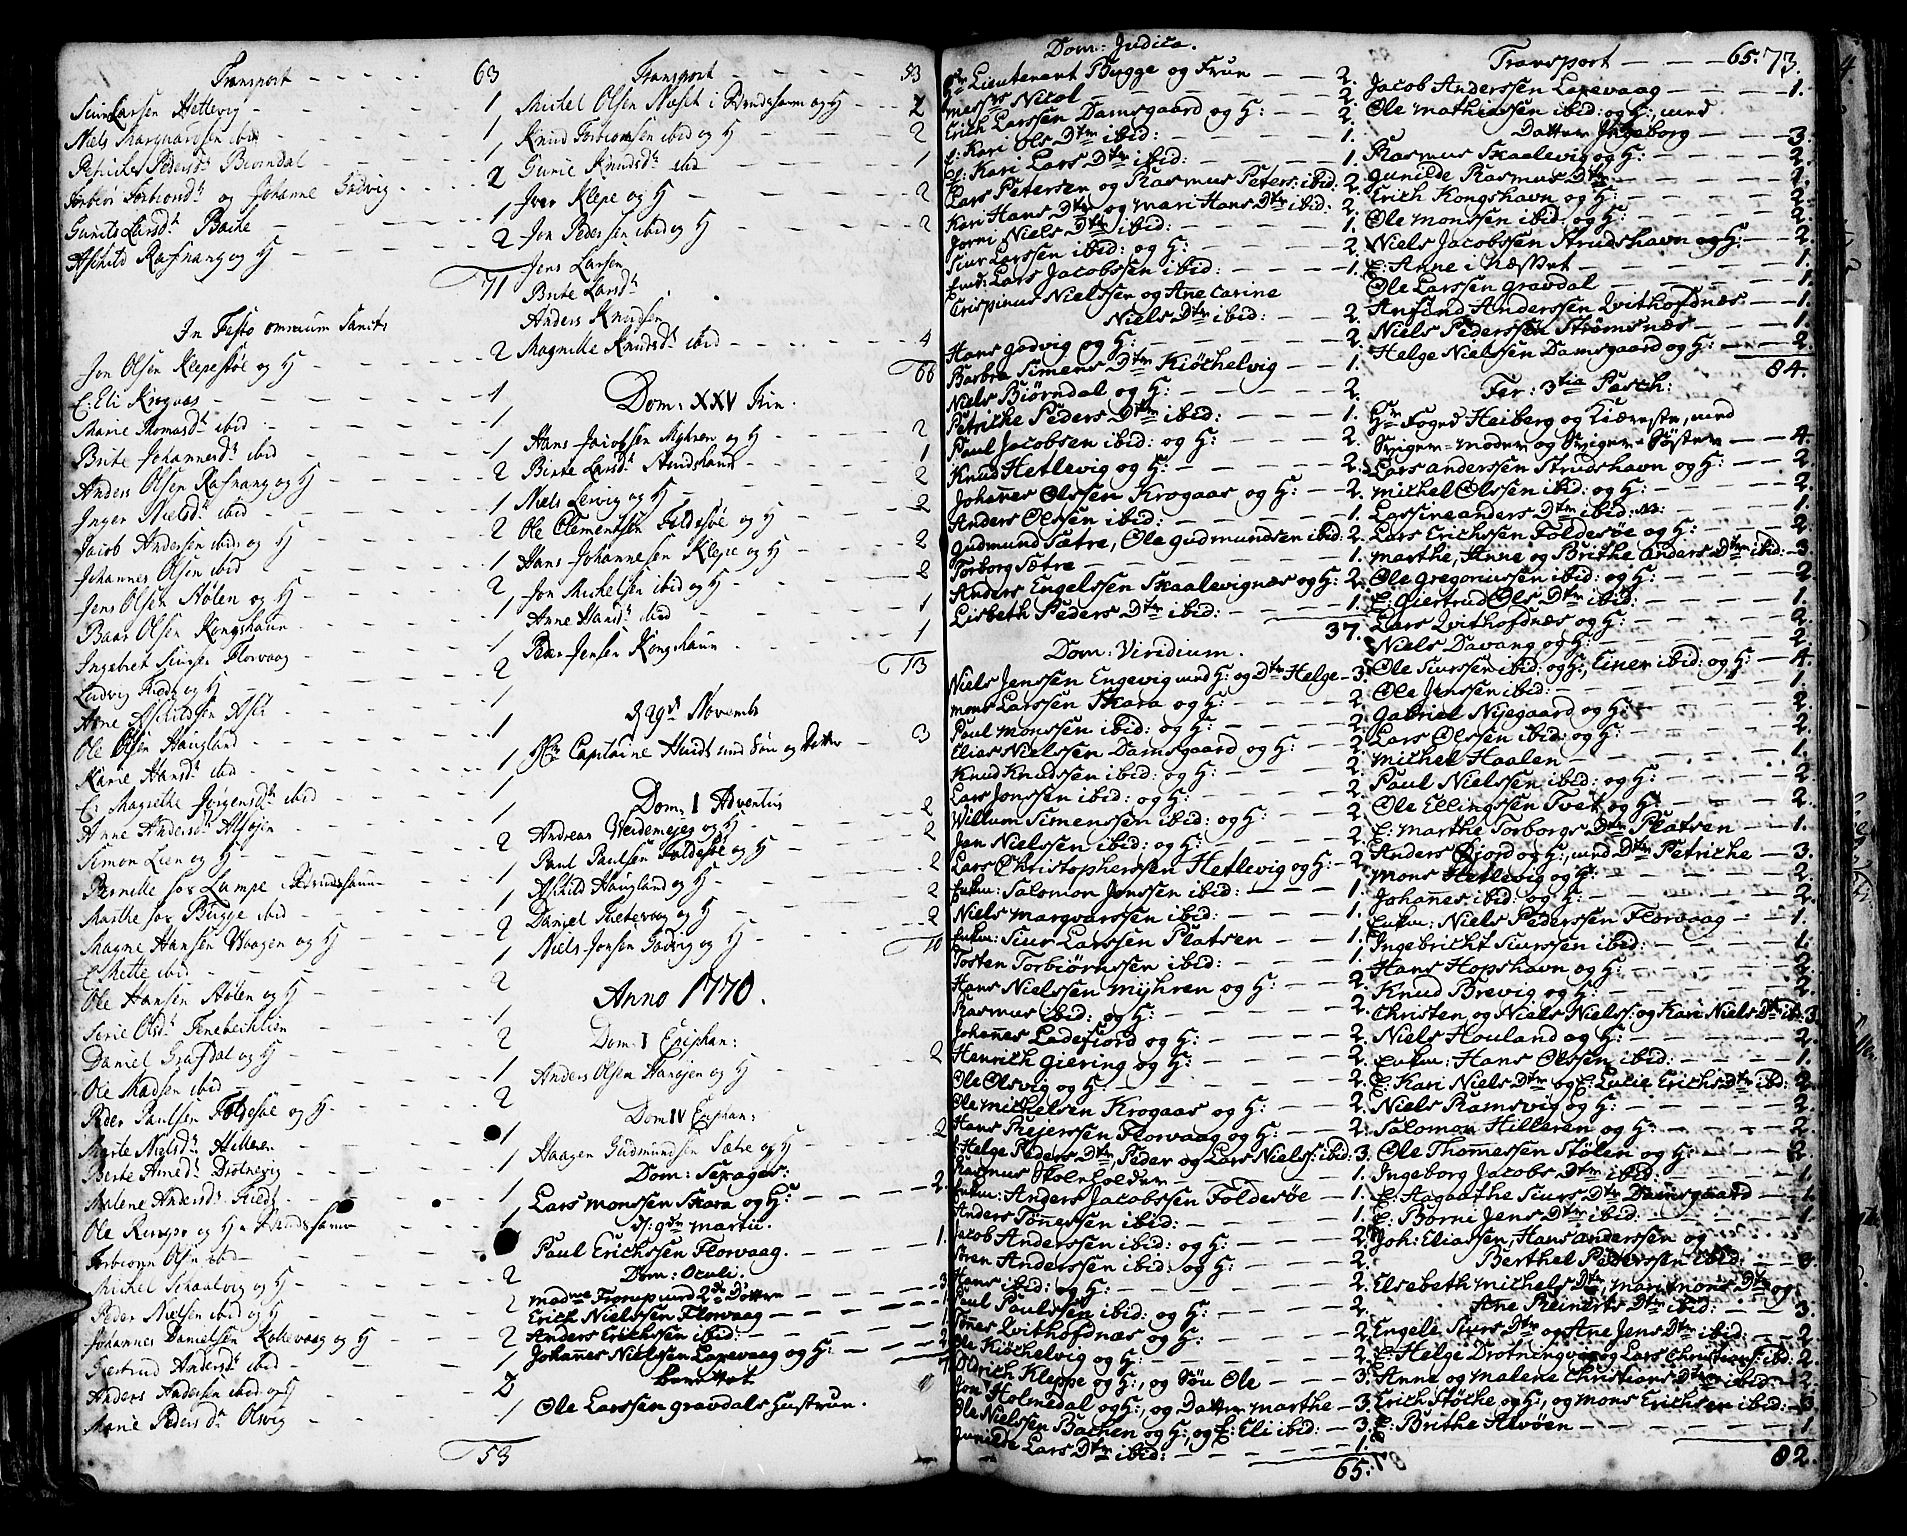 Transport - - - - - 63
Siur Larsen Hetlevig - - - 1
Niels Marqvardsen ibid - - - 1
Petriche Pedersdr Biørndal - - - 1
Torbiør Torbiørnsdr og Johanne Godvig - - - 2
Gurits Larsdr Bache - - - 1
Askild Rafnang og H - - - 2
71
In Festo omnium Sanct:
Jon Olsen Klepestøe og H - - - 2
E: Eli Krogaas - - - 1
Marie Thomasdr ibid - - - 1
Brite Johannesdr ibid - - - 1
Anders Olsen Rafnang og H - - - 2
Inger Nielsdr ibid - - - 1
Jacob Andersen ibid og H - - - 2
Johannes Olsen ibid - - - 1
Jens Olsen Stølen og H - - - 2
Baar Olsen Kongshaun - - - 1
Ingebret Siursen Florvaag - - - 1
Ludvig Tveit og H - - - 2
Arne Askildsen Askø - - - 1
Ole Olsen Haugland - - - 1
Karie Hansdr ibid - - - 1
E: Magrethe Jørgensdr ibid - - - 1
Anne Andersdr Alsøjen - - - 1
Simon Lien og H - - - 2
Pernille hos Lampe Strudshaun - - - 1
Marthe hos Bugge ibid - - - 1
Magne Hansen Waagen og H - - - 2
E: Mette ibid - - - 1
Ole Hansen Stølen og H - - - 2
Serie Olsdr Tenebechlien - - - 1
Daniel Grafdal og H - - - 2
Ole Madsen ibid - - - 1
Peder Paulsen Foldesøe og H - - - 2
Marte Nielsdr Hilleren - - - 1
Berte Arnedr Drotnevig - - - 1
Malene Andersdr Tveit - - - 1
Ole og H Strudshavn - - - 2
Torbiørn Olsen ibid - - - 1
Michel Schaalvig og H - - - 2
Peder Nielsen ibid og H - - - 2
Johannes Danielsen Kolevaag og H - - - 2
Giertrud Andersdr ibid - - - 1
Anders Andersen ibid og H - - - 2
Marie Pedersdr Olsvig - - - 1
53
Transport - - - - - 53
Michel Olsen Næset i Strudshavn og H - - - 2
Knud Torbiørnsen ibid og H - - - 2
Gurie Knudsdr ibid - - - 1
Iver Klepe og H - - - 2
Jon Pedersen ibid og H - - - 2
Jens Larsen
Brite Larsdr
Anders Knudsen
Magnille Knudsdr ibid - - - 4
66
Dom: XXV Trin:
Hans Jacobsen Myhren og H - - - 2
Birte Larsdr Strudshaun - - - 1
Niels Lervig og H - - - 2
Ole Clementsen Foldesøe og H - - - 2
Hans Johannesen Klepe og H - - - 2
Jon Michelsen ibid og H - - - 2
Anne Hansdr ibid - - - 1
Peder Jensen Kongshaun - - - 1
13
d 29de Novembr
Hr Capitaine Huidt med Søn og Datter - 3
Dom: I Adventus
Andreas Weidemejeg og H - - - 2
Paul Paulsen Foldesøe og H - - - 2
Askild Haugland og H - - - 2
Daniel Tveterøen og H - - - 2
Niels Jonsen Godvig og H - - - 2
10
Anno 1770.
Dom: I Epiphan:
Anders Olsen Hanøjen og H - - - 2
Dom IV Epiphan:
Haagen Gudmundsen Sætre og H - - - 2
Dom: Sexages:
Lars Monssen Skara og H: - - - 2.
D: 9de Martii.
Paul Erichssen Florvaag. - - - 1.
Dom: Oculi.
Madme Fiorup med 2de Døttre - - - 3
Erich Nielssen Florvaag - - - 1
Anders Erichssen ibid: - - - 1
Johannes Nielssen Lepevaag og H: - - - 2
7
Berettet
Ole Larssen Gravdals Hustrue.
Dom: Judica.
Hr Lieutenant Bugge og Frue - - 2.
Massrs Nitol - - - 2.
Erich Larssen Damsgaard og H: - - 2.
E: Kari Ols Dtr ibid: - - - 1.
E: Kari Lars Dtr ibid: - - - 1.
Lars Petersen og Rasmus Peters: ibid: 2.
Kari Hans Dtr og Mari Hans Dtr ibid: 2.
Jorni Niels Dtr ibid: - - - 1.
Siur Larssen ibid: og H: - - - 2.
Enk: Lars Jacobssen ibid: - - - 1.
Crispinus Nielssen og Ane Carine
Niels Dtr ibid: - - 2.
Hans Godvig og H: - - - 2.
Barbra Simens Dtr Kiøchelvig - - 1.
Niels Biørndal og H: - - - 2.
Petriche Peders Dtr ibid: - - - 1.
Paul Jacobsen ibid: og H: - - - 2.
Knud Hetlevig og H: - - - 2.
Johanes Olssen Krogaas og H: - - 2.
Anders Olssen ibid: - - - 1.
Gudmund Sætre, Ole Gudmundsen ibid: 2.
Torborg Sætre - - - 1.
Anders Engelssen Skaalevignæs og H: 2.
Lisbeth Peders Dtr ibid: - - - 1.
37.
Dom: Viridium.
Niels Jenssen Engevig med H: og Dtr Helge - 3.
Mons Larssen Skara og H: - - - 2.
Paul Monssen ibid: og H: - - - 2.
Elias Nielssen Damsgaard og H: - - 2.
Knud Knudssen ibid: og H: - - - 2.
Lars Jonssen ibid: og H: - - - 2.
Willum Simenssen ibid: og H: - - 2.
Jan Nielssen ibid: og H: - - - 2.
Lars Christopherssen Hetlevig og H: - 2.
Enkm: Salomon Jonssen ibid: - - - 1.
Niels Marqvarssen ibid: - - - 1.
Enkm: Siur Larssen Platsen - - - 1.
Tosten Torbiørnssen ibid: - - - 1.
Hans Nielssen Myhren og H: - - - 2.
Rasmus ibid: og H: - - - 2.
Johanes Ladefiord og H: - - - 2.
Henrich Giering og H: - - - 2.
Ole Olsvig og H: - - - 2.
Ole Michelsen Krogaas og H: - - 2.
Hans Reierssen Florvaag og H: - - 2.
Helge Peders Dtr, Peder og Lars Niels: ibid: 3.
Rasmus Skoleholder - - - 1.
Enkm: Anders Jacobssen Foldesøe - - 1.
Anders Tønessen ibid: - - - 1.
Jacob Anderssen ibid: og H: - - - 2.
Søren Anderssen ibid: og H: - - - 2.
Hans ibid: og H: - - - 2.
Paul Paulssen ibid: og H: - - - 2.
Tønes Qvithofdnæs og H: - - - 2.
Ole Kiøchelvig og H: - - - 2.
Olrich Kleppe og H:, og Søn Ole - - 3.
Jon Holmedal og H:, og Datter Marthe - 3.
Ole Nielssen Bachen og H:, og E: Eli ibid: - 3.
Gunilde Lars Dtr ibid: - - - 1.
65.
Transport - - - 65. 73.
Jacob Anderssen Lepevaag - - - 1.
Ole Mathiassen ibid: og H:, med
Datter Ingeborg - - - 3.
Rasmus Skaalevig og H: - - - 2.
Gunilde Rasmus Dtr - - - 1.
Erich Kongshavn og H: - - - 2.
Ole Monssen ibid: og H: - - - 2.
Niels Jacobssen Strudshavn og H: - - 2.
E: Anne i Næsset - - - 1.
Ole Larssen Gravdal - - - 1.
Anfind Anderssen Qvithofdnæs - - 1.
Niels Pederssen Strømsnæs - - - 1.
Helge Nielssen Damsgaard og H: - - 2.
84.
Fer: 3tia Pasch:
Hr Foged Heiberg og Kiæreste, med
Sviger-Moder og Sviger-Søster - - 4.
Lars Anderssen Strudshavn og H: - - 2.
Michel Olssen ibid: og H: - - - 2.
Larsine Anders Dtr ibid: - - - 1.
Lars Erichssen Foldesøe og H: - - - 2.
Marthe, Anne og Brithe Anders Dtr ibid: - 3.
Ole Gregoriussen ibid: og H: - - - 2.
E: Giertrud Ols Dtr ibid: - - - 1.
Lars Qvithofdnæs og H: - - - 2.
Niels Davang og H: - - - 2.
Ole Siurssen ibid: og H:, Einer ibid: og H: - 4.
Ole Jenssen ibid: - - - 1.
Gabriel Nyegaard og H: - - - 2.
Lars Olssen ibid: og H: - - - 2.
Michel Haalen - - - 1.
Paul Nielssen ibid: og H: - - - 2.
Ole Ellingssen Tvet og H: - - - 2.
E: Marthe Torborgs Dtr Platsen - - 1.
Anders Øjord og H:, med Dtr Petriche - - 3.
Mons Hetlevig og H: - - - 2.
Johanes ibid: og H: - - - 2.
Enkm: Niels Pederssen Florvaag - - 1.
Ingebricht Siurssen ibid: - - - 1.
Hans Hopshavn og H: - - - 2.
Knud Brevig og H: - - - 2.
Christen og Niels Niels: og Kari Niels Dtr ib: 3.
Niels Houland og H: - - - 2.
Enkm: Hans Olssen ibid: - - - 1.
E: Kari Niels Dtr og E: Lucie Erichs Dtr ibid: 2.
Niels Ramsvig og H: - - - 2.
Salomon Hilleren og H: - - - 2.
Ole Thomessen Stølen og H: - - - 2.
Ingeborg Jacobs Dtr ibid: - - - 1.
E: Aagaathe Siurs Dtr Damsgaard - - 1.
E: Borni Jens Dtr ibid: - - - 1.
Joh: Eliassen, Hans Anderssen og
Berthel Pederssen ibid: - - 3.
Elsebeth Michels Dtr, Mari Mons Dtr og
Ane Reinerts Dtr ibid: - - 3.
Engele Siurs Dtr og Ane Jens Dtr ibid: - - 2.
E: Helge Drotningvig og Lars Christians: ibid: 2.
Anne og Malene Christians Dtr ibid: - - 2.
Erich Støle og H:, og Mons Erichsen ibid: - 3.
E: Brithe Alvøen - - - 1.
82.